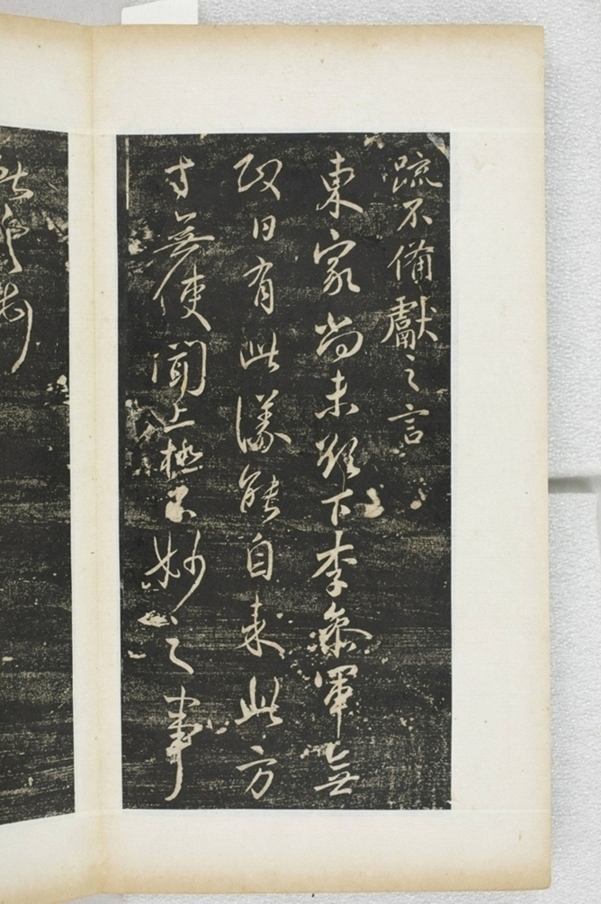 疏不備獻之言
東家尚未下李參軍
日有此議能自來此方
寸無使聞上極不妙之事